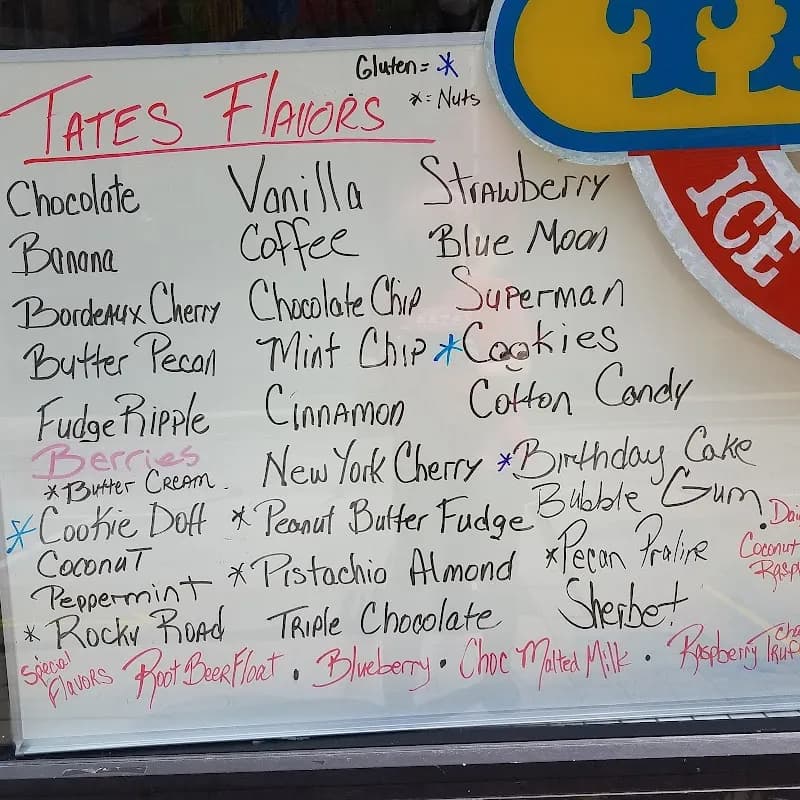 Gluten = *
* = Nuts
TATES FLAVORS
Chocolate Vanilla Strawberry
Banana Coffee Blue Moon
Bordeaux Cherry Chocolate Chip Superman
Butter Pecan Mint Chip *Cookies
Fudge Ripple Cinnamon Cotton Candy
Berries New York Cherry *Birthday Cake
*Butter Cream Bubble Gum
*Cookie Doff *Peanut Butter Fudge
Coconut *Pistachio Almond *Pecan Praline
Peppermint
*Rocky Road Triple Chocolate Sherbet
Special Flavors Root Beer Float • Blueberry • Choc Malted Milk • Raspberry
Coconut
ICE